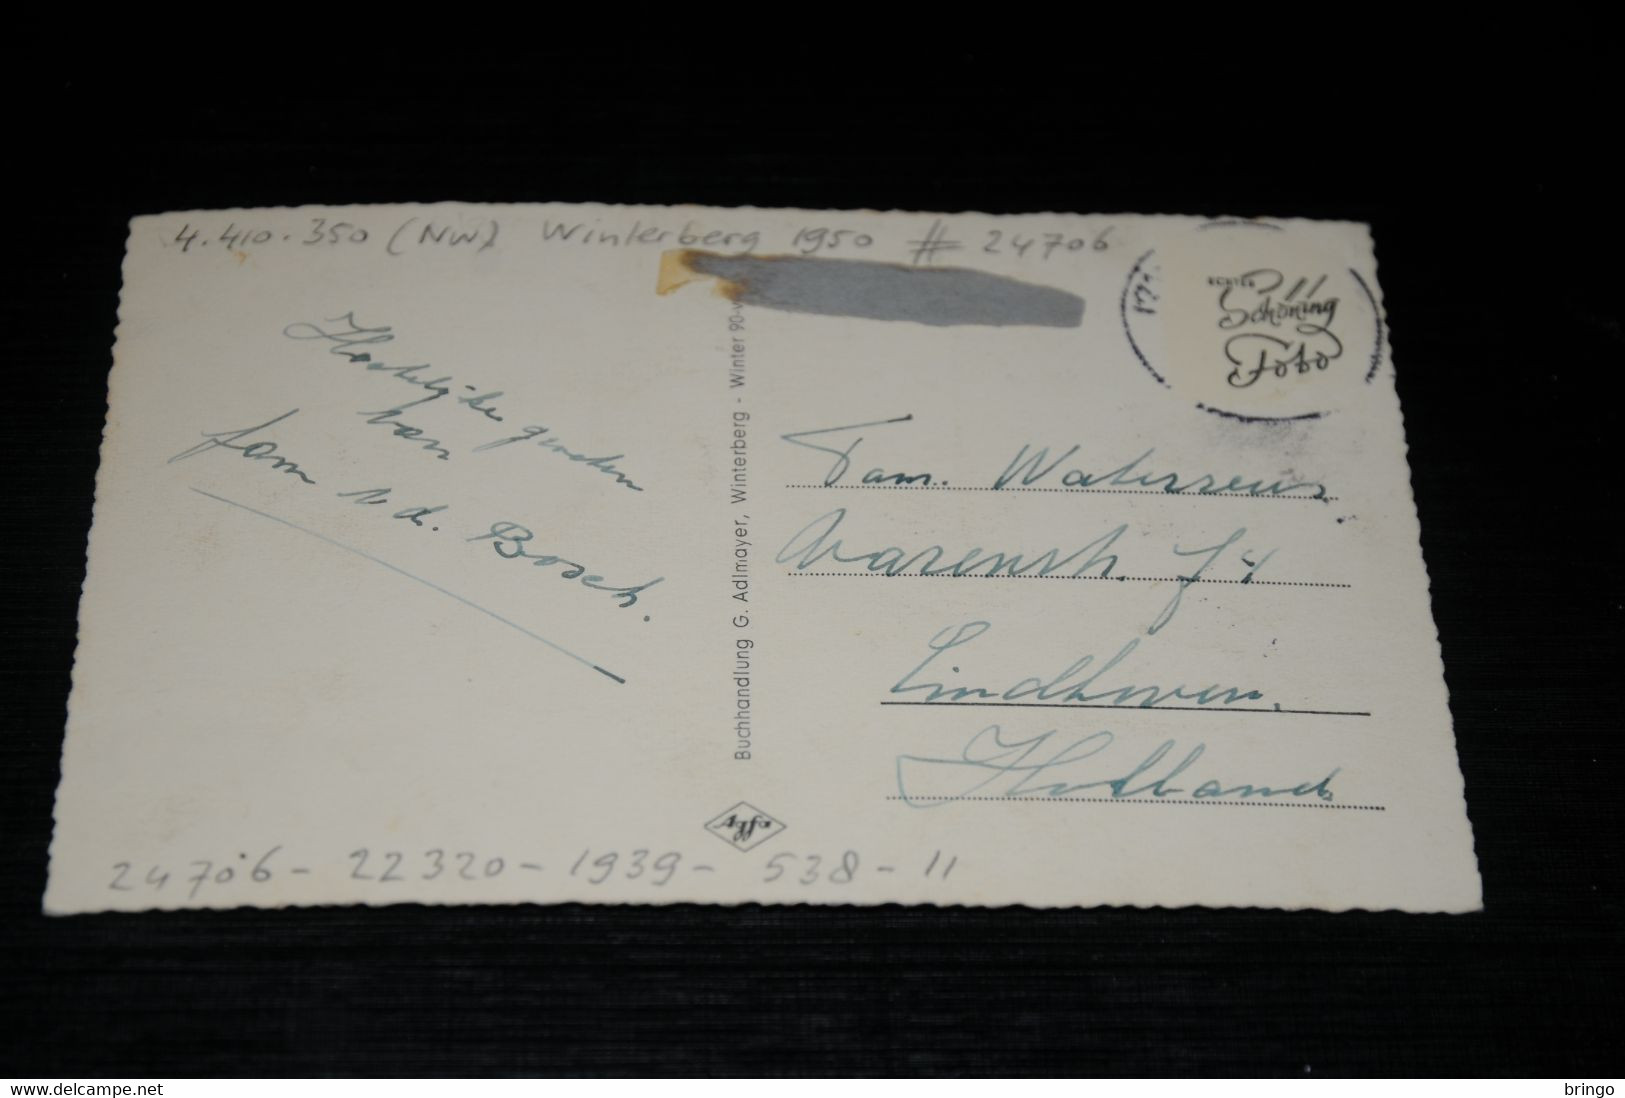 4.410.350 (NW) Winterberg 1950 # 24706
ECHTES
Schöning
Foto
Hartelijke groeten
van
fam v d. Bosch.
Buchhandlung G. Adlmayer, Winterberg - Winter 90-v
Fam.
74
Eindhoven.
Holland
Agfa
24706 - 22320 - 1939 - 538 - 11
www.delcampe.net
bringo